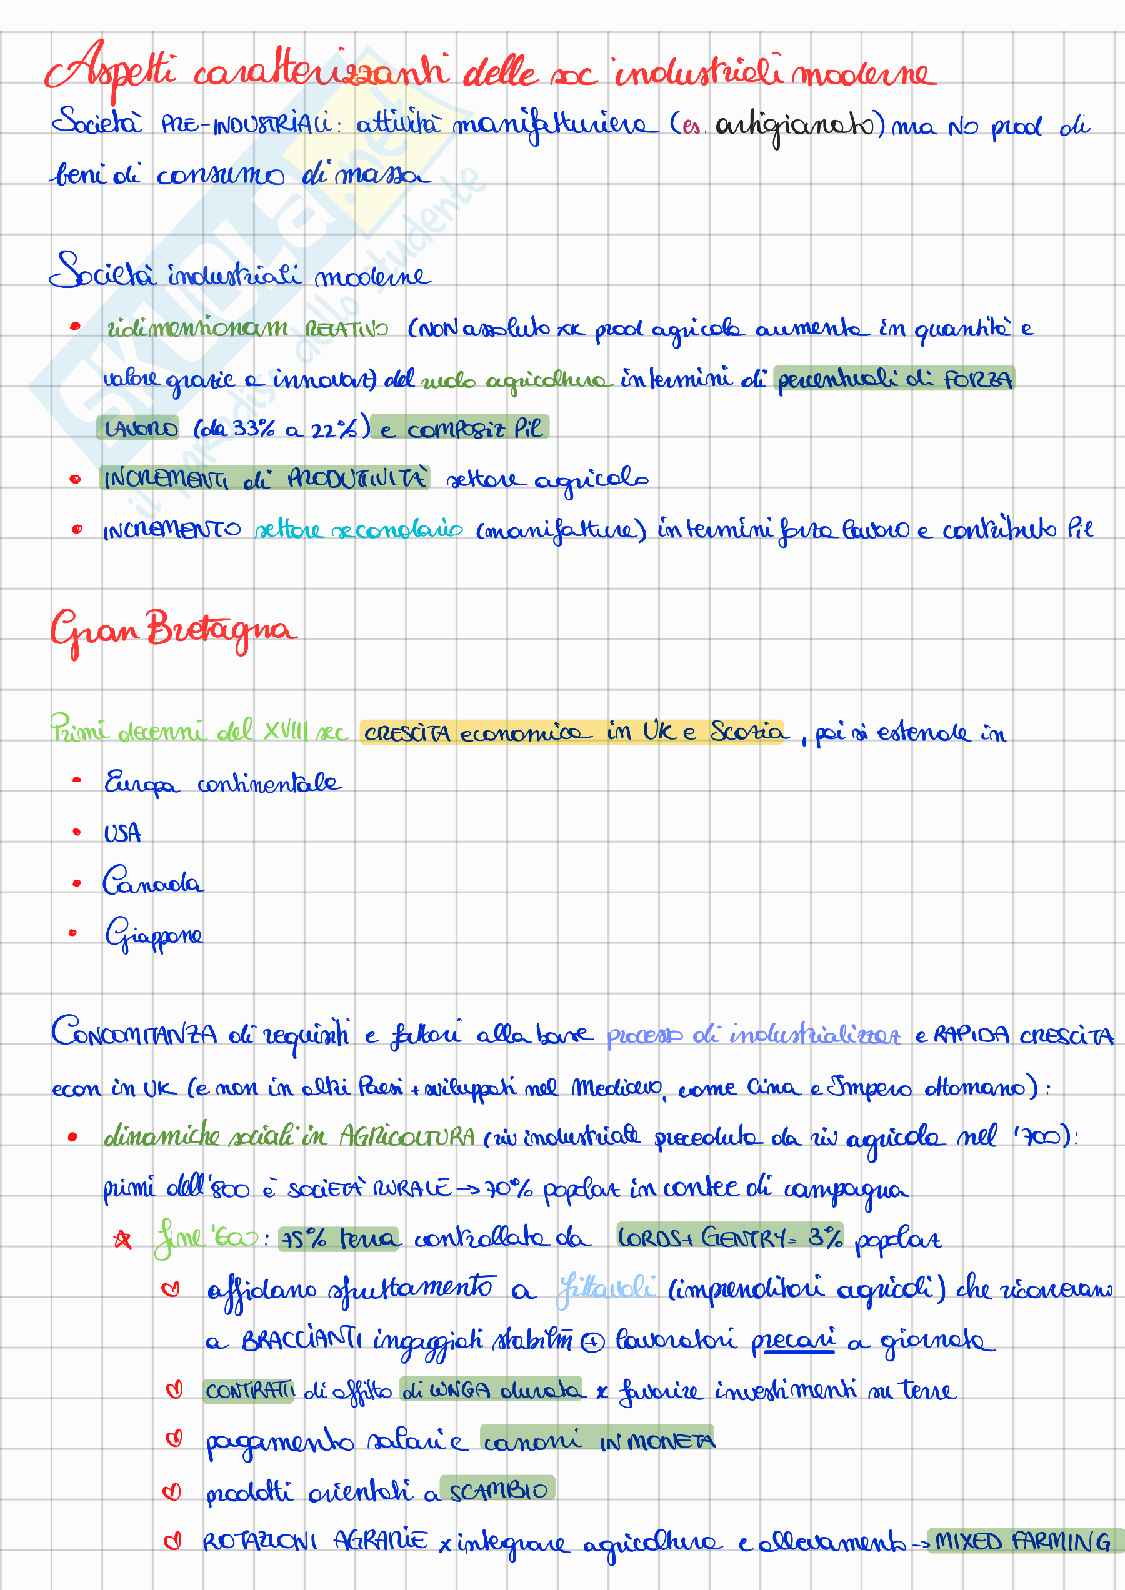 Aspetti caratterizzanti delle soc industriali moderne
Società PRE-INDUSTRIALI: attività manifatturiera (es. artigianato) ma NO prod di
beni di consumo di massa
Società industriali moderne
• ridimentionam RELATIVO (NON assoluto xk prod agricola aumenta in quantità e
valore grazie a innovaz) del ruolo agricoltura in termini di percentuali di FORZA
LAVORO (da 33% a 22%) e composiz Pil
• INCREMENTI di PRODUTIVITÀ settore agricolo
• INCREMENTO settore secondario (manifatture) in termini forza lavoro e contributo Pil
Gran Bretagna
Primi decenni del XVIII sec CRESCITA economica in UK e Scozia, poi si estende in
• Europa continentale
• USA
• Canada
• Giappone
CONCOMITANZA di requisiti e fattori alla base processo di industrializzaz e RAPIDA CRESCITA
econ in UK (e non in altri Paesi + sviluppati nel Medioevo, come Cina e Impero ottomano):
• dinamiche sociali in AGRICOLTURA (riv industriale preceduta da riv agricola nel '700):
primi dell'800 è SOCIETÀ RURALE → 70% popolaz in contee di campagna
fine '600: 75% terra controllata da LORDS + GENTRY = 3% popolaz
affidano sfruttamento a fittavoli (imprenditori agricoli) che ricorrevano
a BRACCIANTI ingaggiati stabilm + lavoratori precari a giornata
CONTRATTI di affitto di LUNGA durata x favorire investimenti su terre
pagamento salari e canoni IN MONETA
prodotti orientati a SCAMBIO
ROTAZIONI AGRARIE x integrare agricoltura e allevamento → MIXED FARMING
SKUOLA.net
il paradiso dello studente